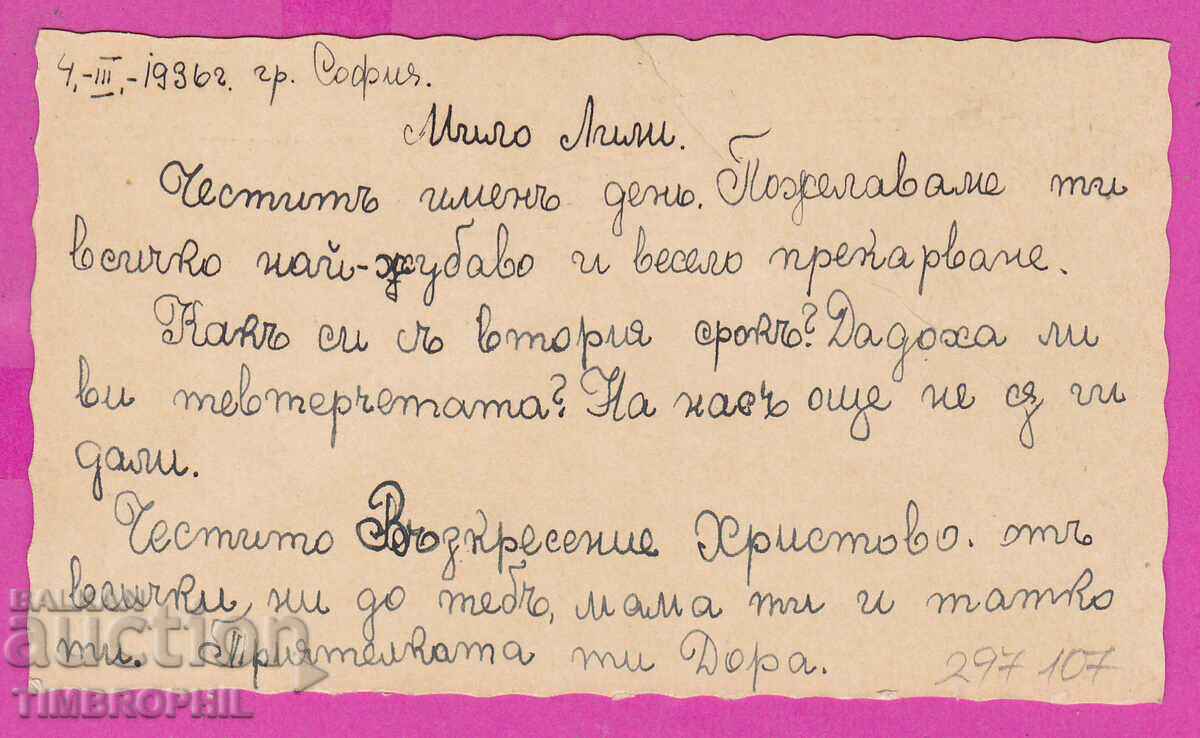 4.-III.-1936г. гр. София.
Мило Лили.
Честитъ именъ день. Пожелаваме ти
всичко най-хубаво и весело прекарване.
Какъ си съ втория срокъ? Дадоха ли
ви тевтерчетата? На насъ още не сѫ ги
дали.
Честито Възкресение Христово. отъ
всички ни до тебъ, мама ти и татко
ти. Приятелката ти Дора.
297 107
BALKAN
auction
TIMBROPHIL